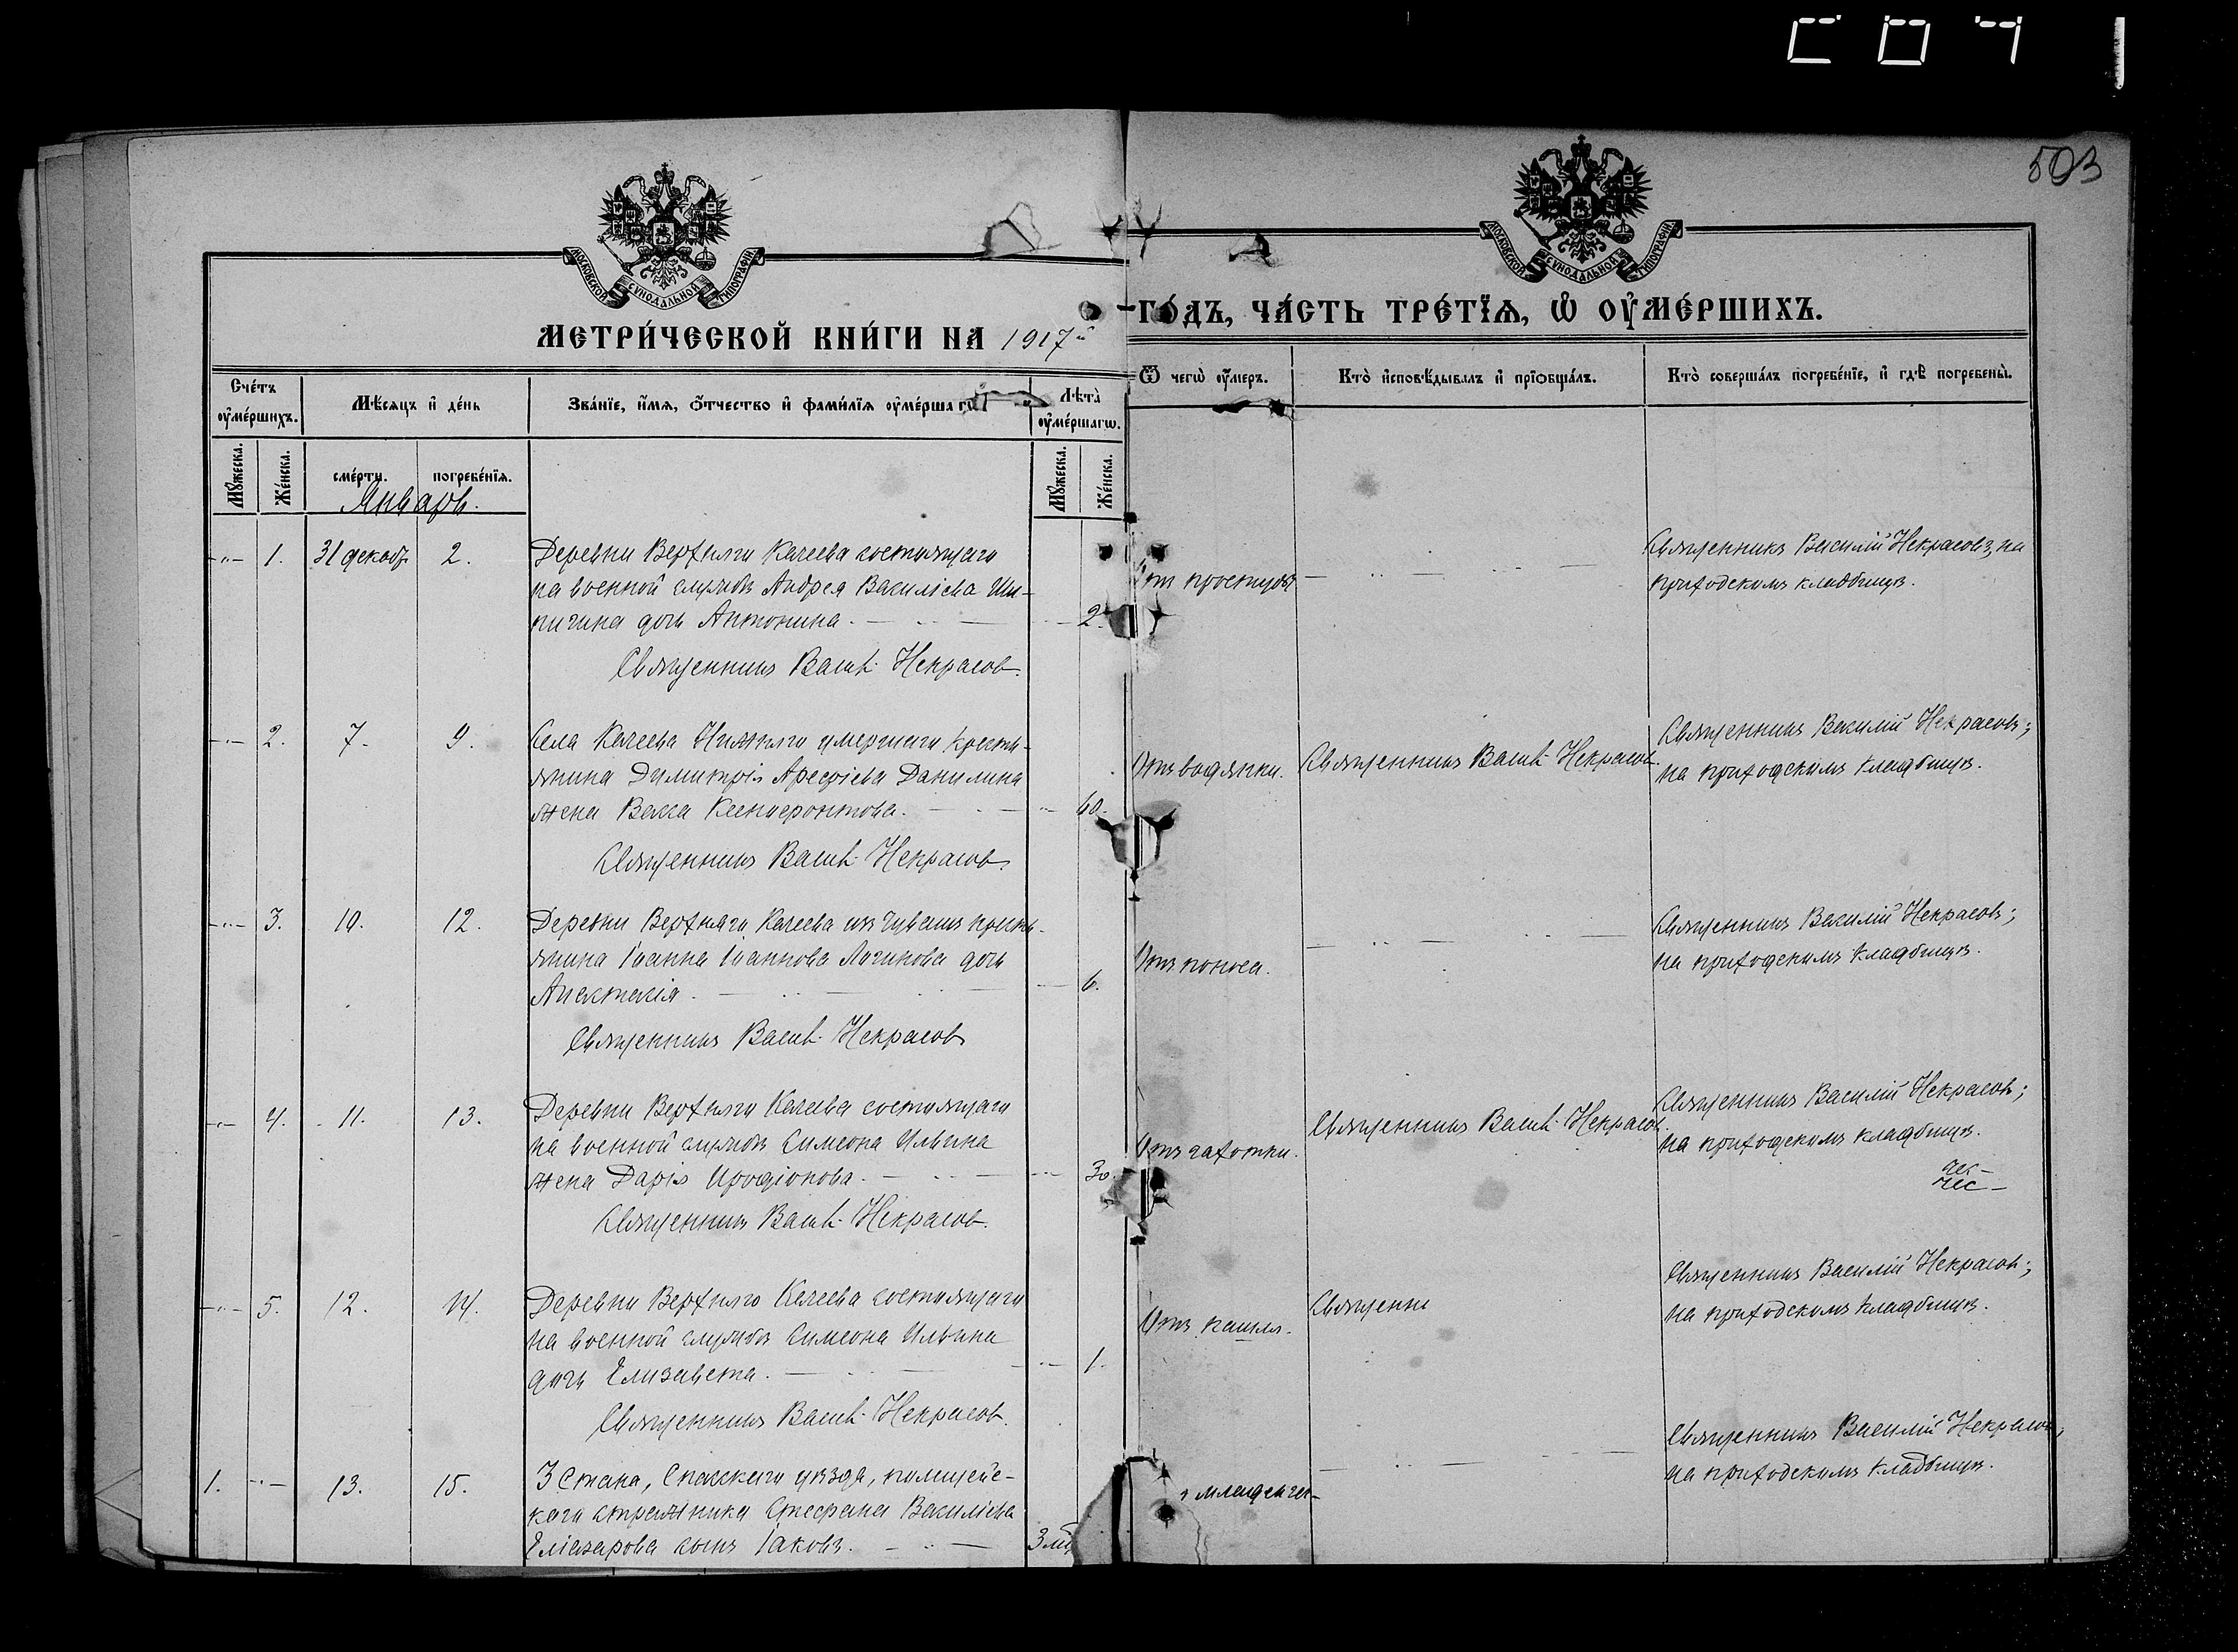 503
МОСКОВСКОЙ СѴНОДАЛЬНОЙ ТИПОГРАФІИ
МОСКОВСКОЙ СѴНОДАЛЬНОЙ ТИПОГРАФІИ
МЕТРИ́ЧЕСКОЙ КНИ́ГИ НА 1917й
ГО́ДЪ, ЧА́СТЬ ТРЕ́ТЇѦ, Ѡ҆ ОУ҆МЕ́РШИХЪ.
Сче́тъ оу҆ме́ршихъ.
Мꙋ́жеска.
Же́нска.
Мѣ́сѧцъ и҆ де́нь
сме́рти.
погребе́нїѧ.
Зва́нїе, и҆́мѧ, ѻ҆́тчество и҆ фами́лїѧ оу҆ме́ршагѡ
Лѣта̀ оу҆ме́ршагѡ.
Мꙋ́жеска.
Же́нска.
Ѿ чегѡ̀ оу҆́меръ.
Кто̀ и҆сповѣ́дывалъ и҆ прїѡбща́лъ.
Кто̀ соверша́лъ погребе́нїе, и҆ гдѣ̀ погребены̀.
Январь.
1. 31 декабр. 2.
Деревни Верхняго Качеева состоящаго
на военной службѣ Андрея Василіева Ши-
пигина дочь Антонина. 2.
Священникъ Васил. Некрасов
Отъ простуды
Священникъ Василій Некрасовъ, на
приходскомъ кладбищѣ.
2. 7. 9.
Села Качеева Нижняго умершаго крестья-
янина Димитрія Арефіева Данилина
жена Васса Ксенофонтова. 60.
Священникъ Васил. Некрасов.
Отъ водянки.
Священникъ Васил. Некрасов.
Священникъ Василій Некрасовъ;
на приходскомъ кладбищѣ.
3. 10. 12.
Деревни Верхняго Качеева изъ чувашъ кресть-
янина Іоанна Іоаннова Логинова дочь
Анастасія. 6.
Священникъ Васил. Некрасов
Отъ поноса.
Священникъ Василій Некрасовъ;
на приходскомъ кладбищѣ.
4. 11. 13.
Деревни Верхняго Качеева состоящаго
на военной службѣ Симеона Ильина
жена Дарія Иродіонова. 30.
Священникъ Васил. Некрасов.
Отъ чахотки.
Священникъ Васил. Некрасов.
Священникъ Василій Некрасовъ;
на приходскомъ кладбищѣ.
5. 12. 14.
Деревни Верхняго Качеева состоящаго
на военной службѣ Симеона Ильина
дочь Елизавета. 1.
Священникъ Васил. Некрасов.
Отъ кашля.
Священни
Священникъ Василій Некрасовъ;
на приходскомъ кладбищѣ.
1. 13. 15.
3 Стана, Спасскаго уѣзда, полицейс-
каго стражника Стефана Василіева
Еліазарова сынъ Іаковъ. 3
младенчес-
Священникъ Василій Некрасовъ,
на приходскомъ кладбищѣ.